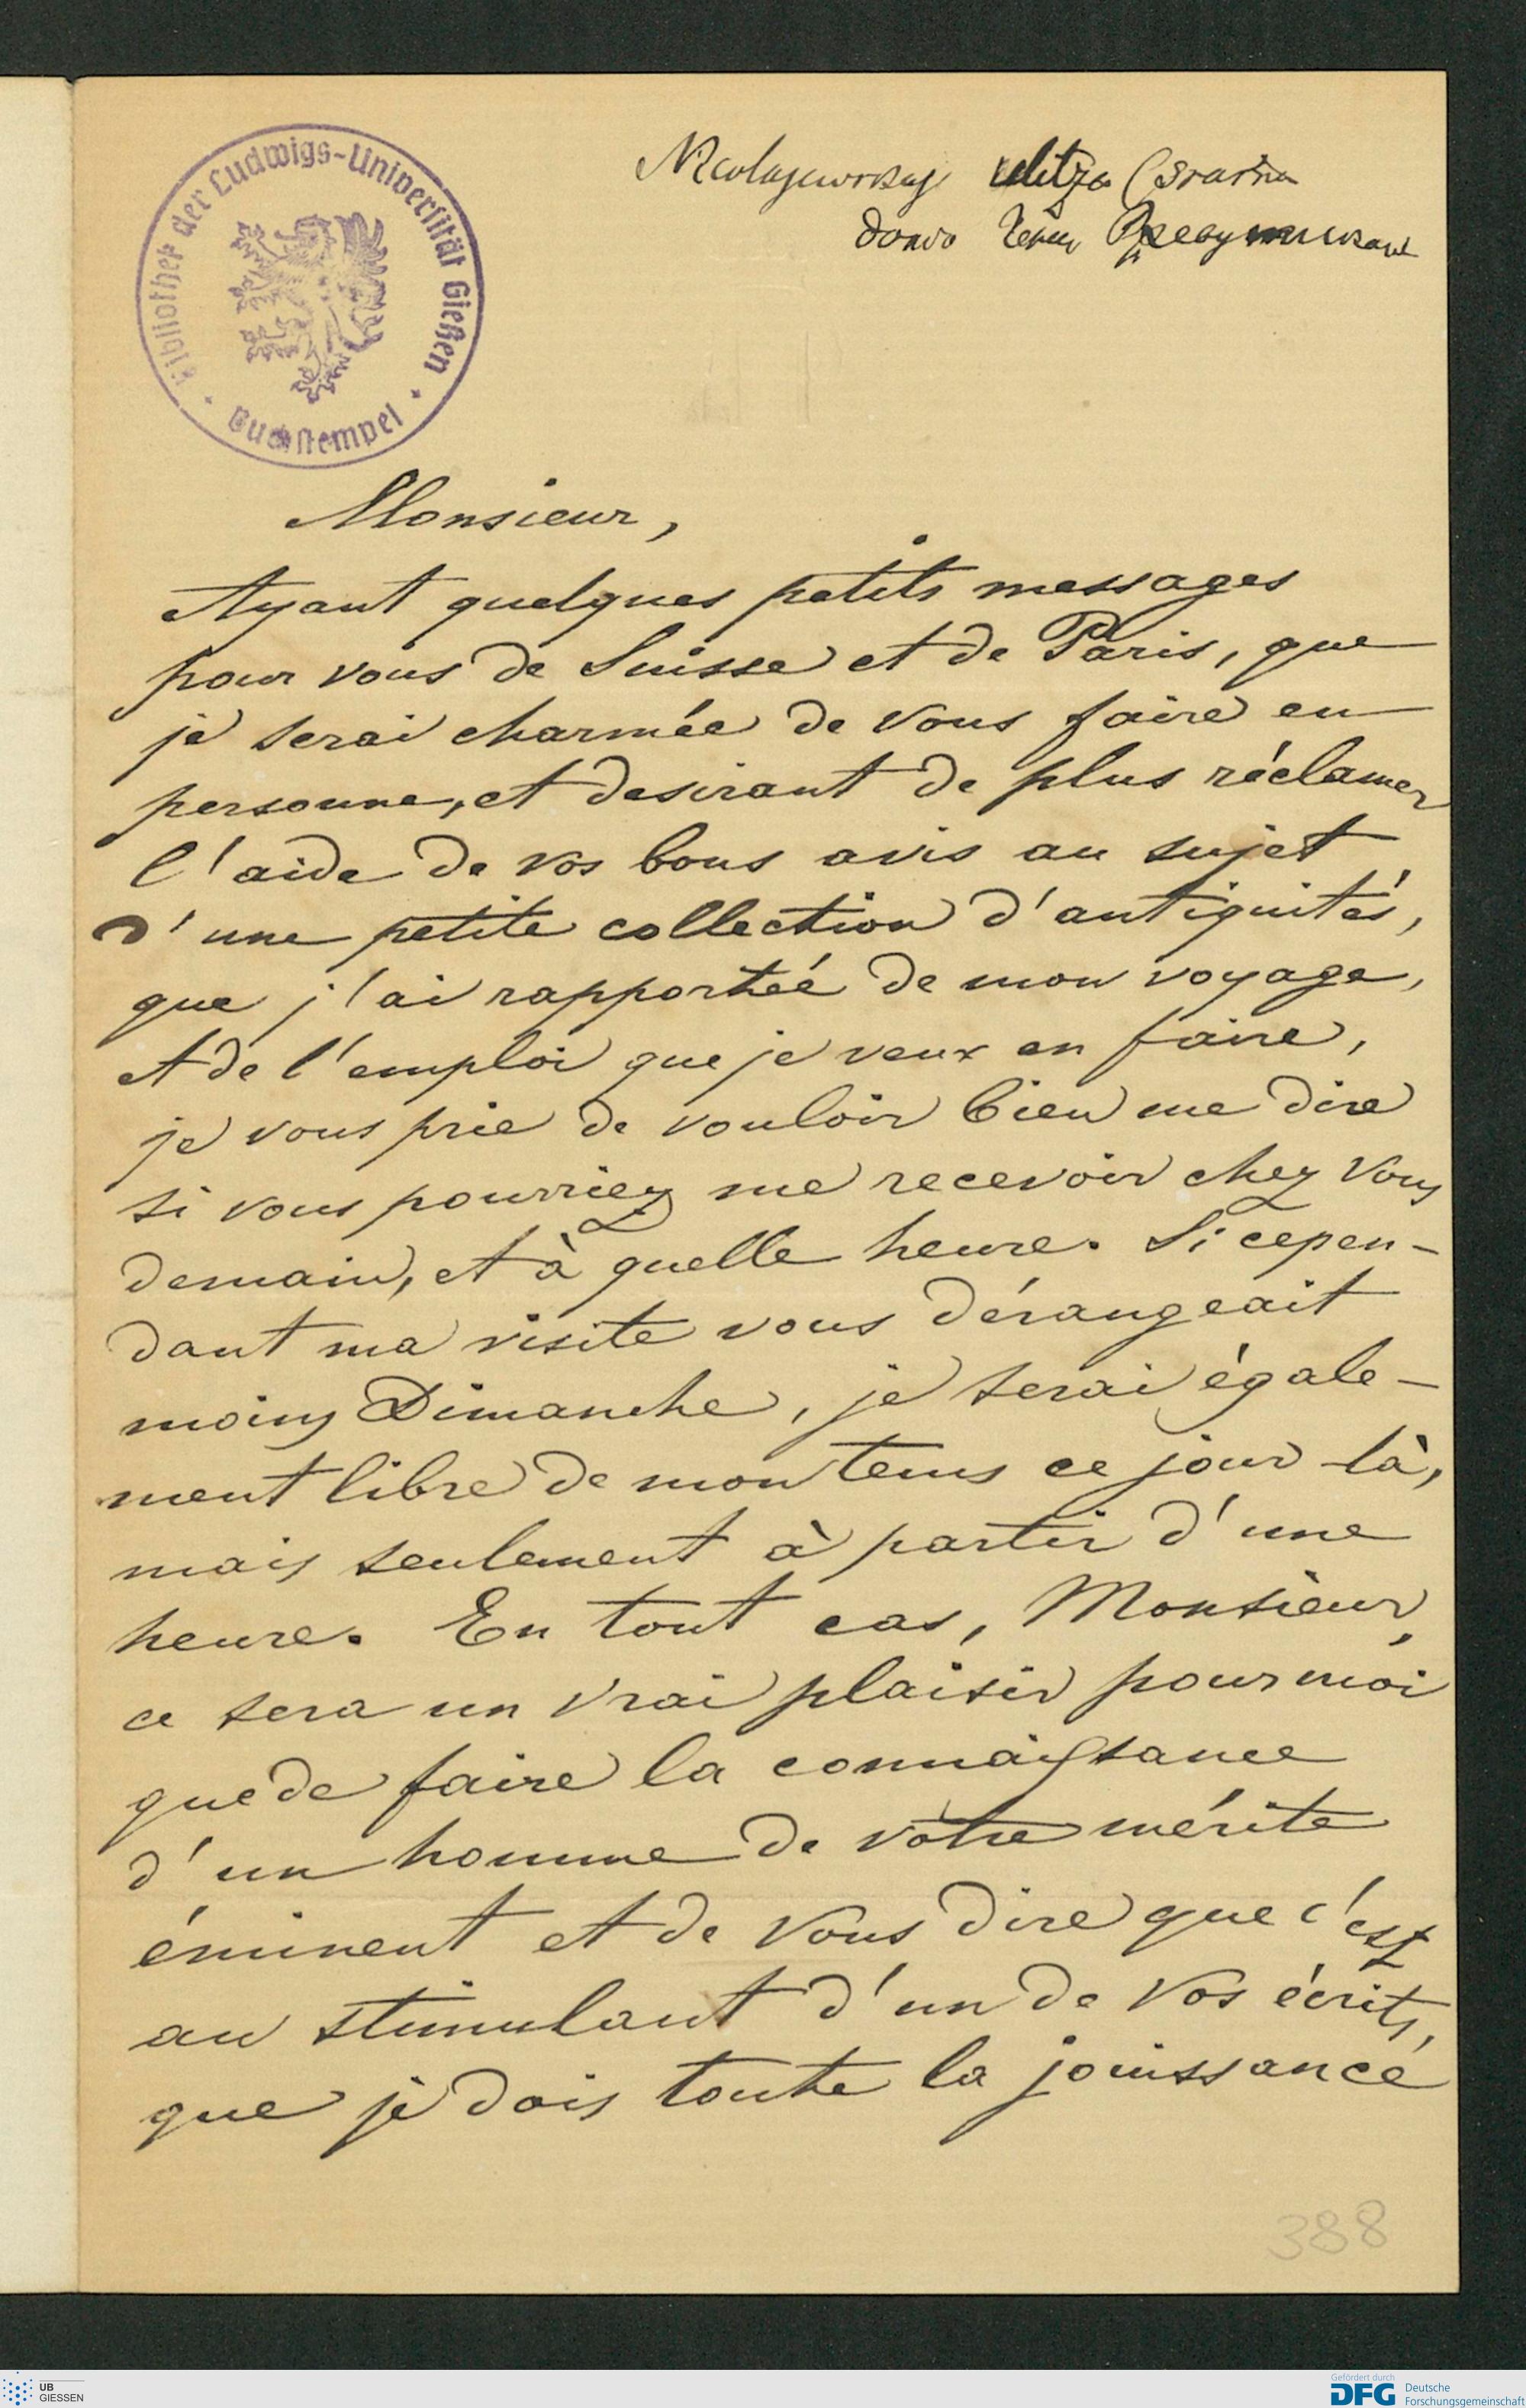 ulitza
Bibliothek der Ludwigs-Universität Gießen
Buchstempel
Monsieur,
Ayant quelques petits messages
pour vous de Suisse et de Paris, que
je serai charmée de vous faire en
personne, et desirant de plus réclamer
l'aide de vos bons avis au sujet
d'une petite collection d'antiquités,
que j'ai rapportée de mon voyage,
et de l'emploi que je veux en faire,
je vous prie de vouloir bien me dire
si vous pourriez me recevoir chez vous
demain, et à quelle heure. Si cepen-
dant ma visite vous dérangeait
moins Dimanche, je serai égale-
ment libre de mon tems ce jour-là,
mais seulement à partir d'une
heure. En tout cas, Monsieur,
ce sera un vrai plaisir pour moi
que de faire la connaissance
d'un homme de votre mérite
éminent et de vous dire que c'est
au stimulant d'un de vos écrits,
que je dois toute la jouissance
388
UB
GIESSEN
Gefördert durch
DFG Deutsche
Forschungsgemeinschaft